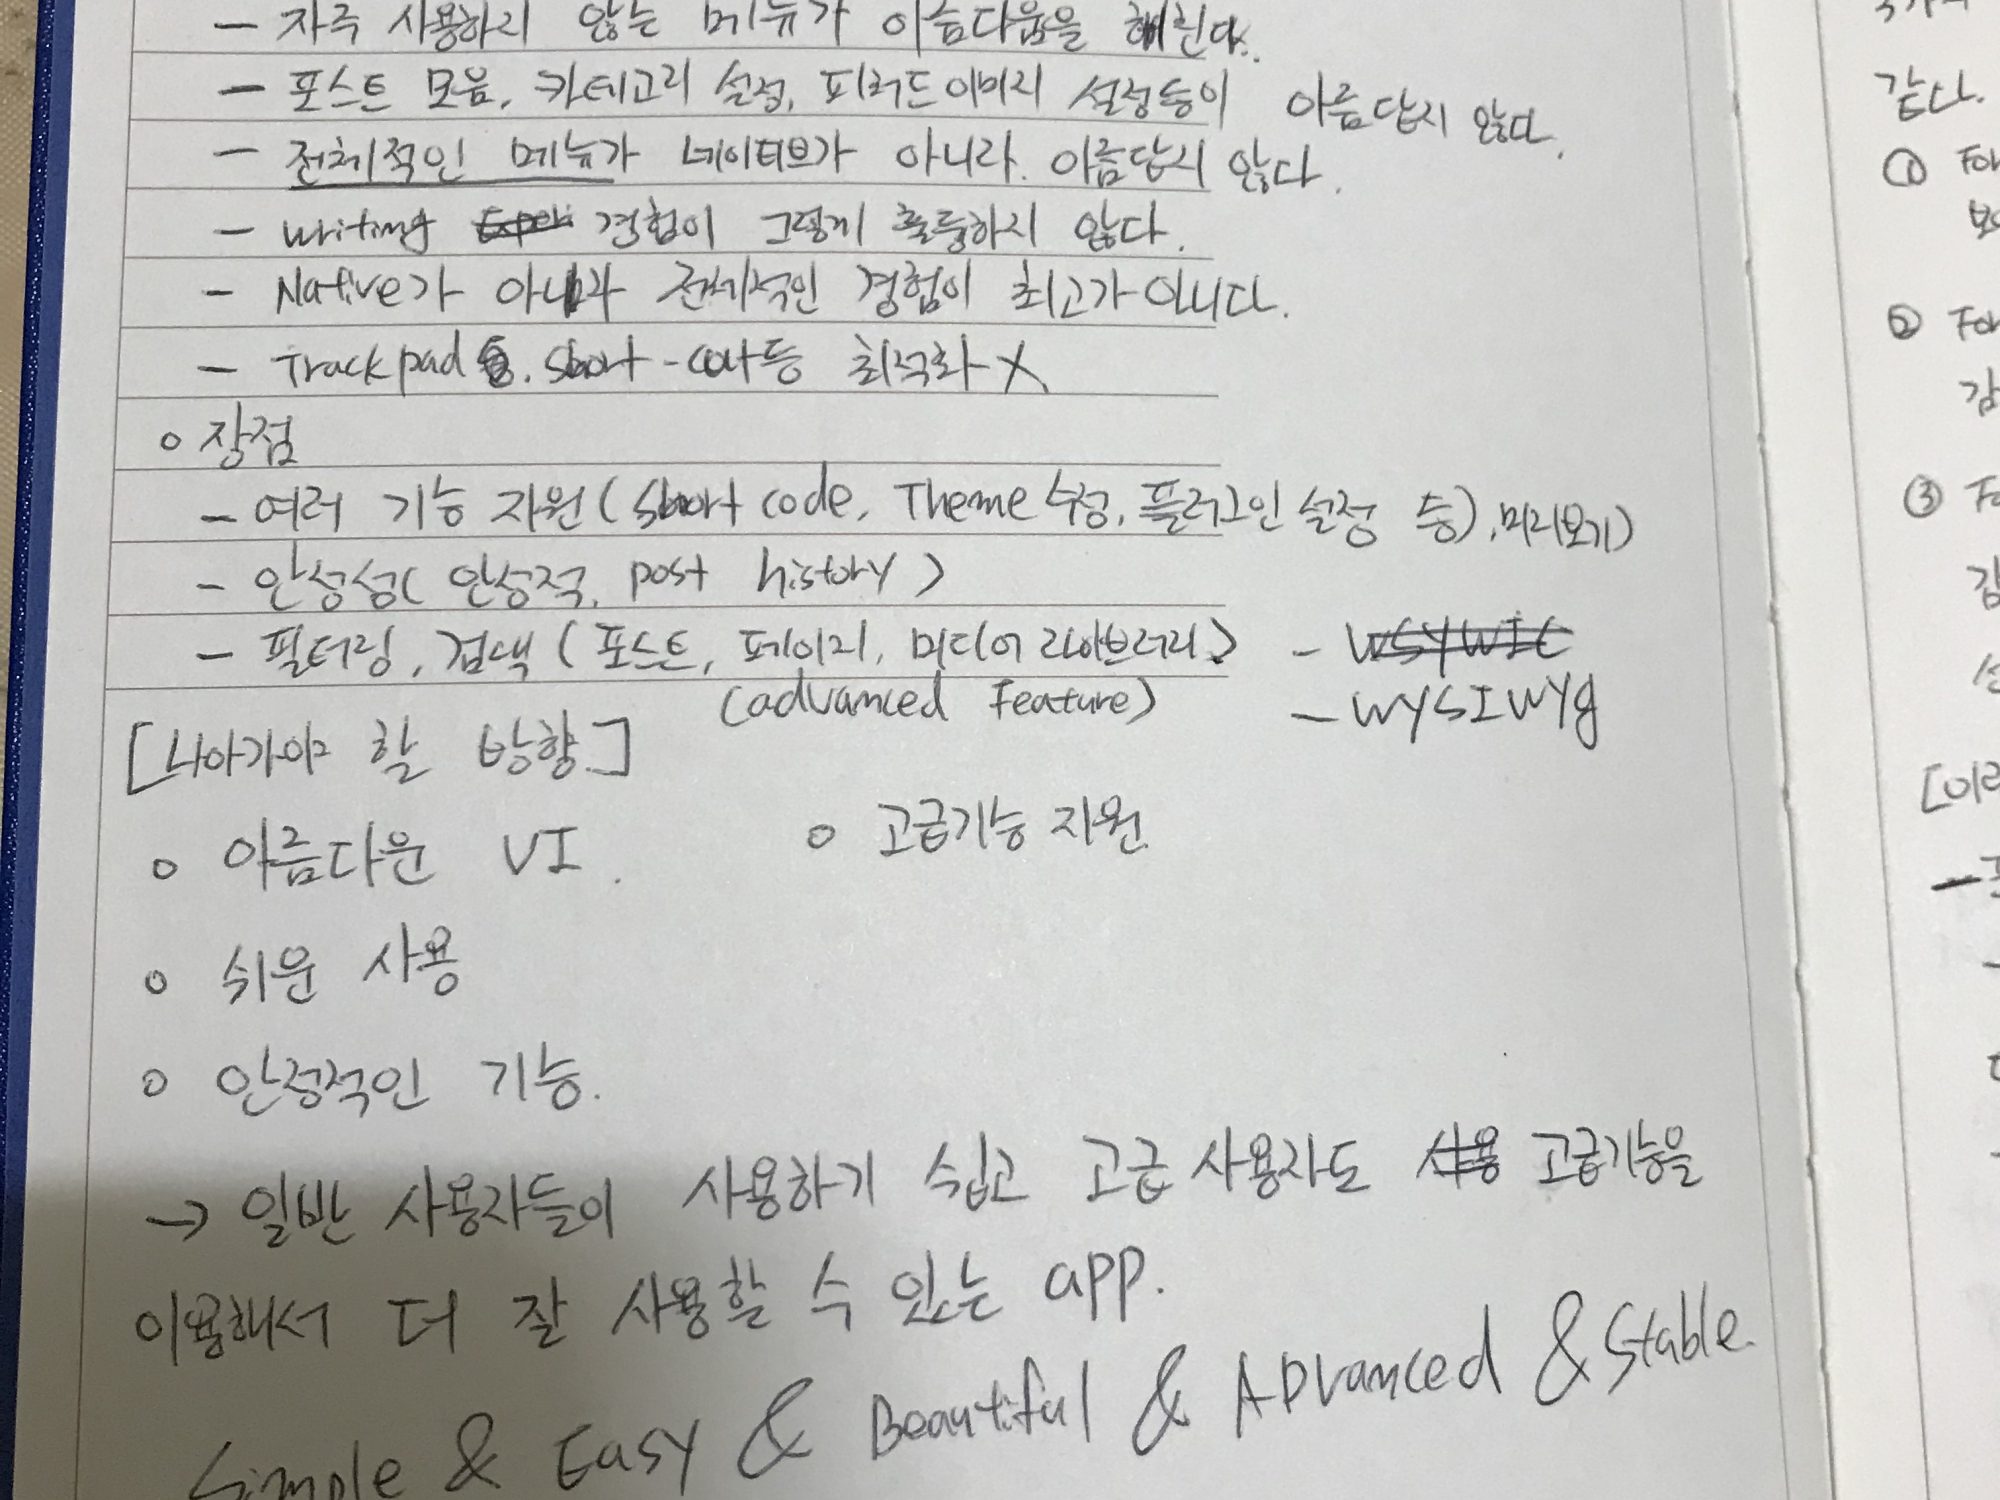 - 자주 사용하지 않는 메뉴가 아름다움을 해친다.
- 포스트 모음, 카테고리 설정, 피쳐드이미지 설정등이 아름답지 않다.
- 전체적인 메뉴가 네이티브가 아니라. 아름답지 않다.
- writing 경험이 그렇게 훌륭하지 않다.
- Native가 아니라 전체적인 경험이 최고가 아니다.
- Trackpad. short-cut등 최적화 X
○ 장점
- 여러 기능 지원(short code, Theme 수정, 플러그인 설정 등), 미리보기)
- 안정성( 안정적, post history)
- 필터링, 검색(포스트, 페이지, 미디어 라이브러리)
(advanced Feature)
- WSYWIC
- WYSIWYg
[나아가야 할 방향.]
○ 아름다운 UI.
○ 고급기능 지원.
○ 쉬운 사용
○ 안정적인 기능.
→ 일반 사용자들이 사용하기 쉽고 고급 사용자도 사용 고급기능을
이용해서 더 잘 사용할 수 있는 app.
Simple & Easy & Beautiful & ADvanced & Stable.
같다.
①
②
감
③